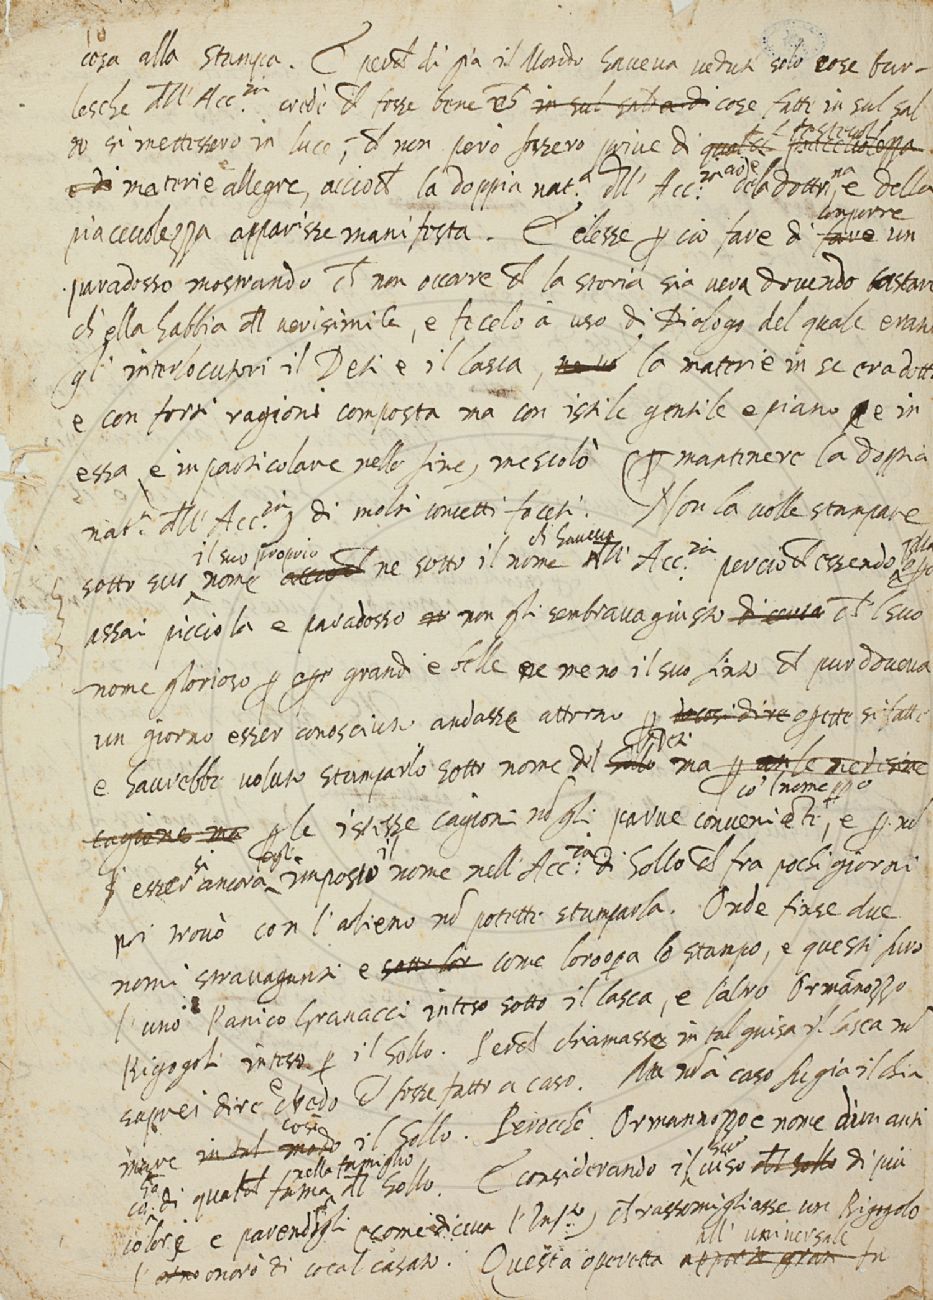 cosa alla stampa. E perchè di già il Mondo haveva vedute solo cose bur-
lesche dell'Acc.ia credè che fosse bene che in sul saldo di cose fatte in sul sal
do si mettessero in luce, che non però fossero prive di
e di materie allegre, acciochè la doppia nat.a dell'Acc.ia della dottr.na e della
piacevolezza apparisse manifesta. E elesse per ciò fare di fare comporre un
paradosso mostrando che non occorre che la storia sia vera dovendo bastare
ch'ella habbia del verisimile, e fecelo à uso di Dialogo del quale erano
gl'interlocutori il Deti e il Lasca, la materie in se era dotta
e con forti ragioni composta ma con istile gentile e piano e in
essa, e in particolare nella fine, mescolò (per mantinere la doppia
nat.a dell'Acc.ia) di molti concetti faceti. Non la volle stampare
sotto suo il suo proprio nome acciochè ne sotto il nome ch'haveva nell'Acc.ia perciochè essendo
assai picciola e paradosso non gli sembrava giusto che 'l suo
nome glorioso per opre grandi e belle ne meno il suo finto che pur doveva
un giorno esser conosciuto andasse attorno per operette si fatte
e haurebbe voluto stamparlo sotto nome del Sollo ma per le medesime
cagione ma per le istesse cagioni non gli parve conveniente, e per non
esser si ancora egli imposto il nome nell'Acc.ia di Sollo che fra pochi giorni
poi trovò con l'alieno non potette stamparla. Onde finse due
nomi stravaganti e sotto lor come loro opera lo stampo, e questi furo
l'uno Panico Granacci inteso sotto il Lasca, e l'altro Ormannozzo
Rigogoli inteso per il Sollo. Perchè chiamasse in tal guisa il Lasca non
saprei dire e credo che fosse fatto a caso. Ma non à caso fu già il chia
mare in tal modo così il Sollo. Perocchè Ormannozzo e nome d'un anti
co di qualche fama nella famiglia del Sollo. E considerando il suo viso del Sollo di più
colori e parendogli (come diceva l'Inf.o) che rassomigliasse un Rigogolo
l'onorò di cotal casato. Questa operetta all'universale fu